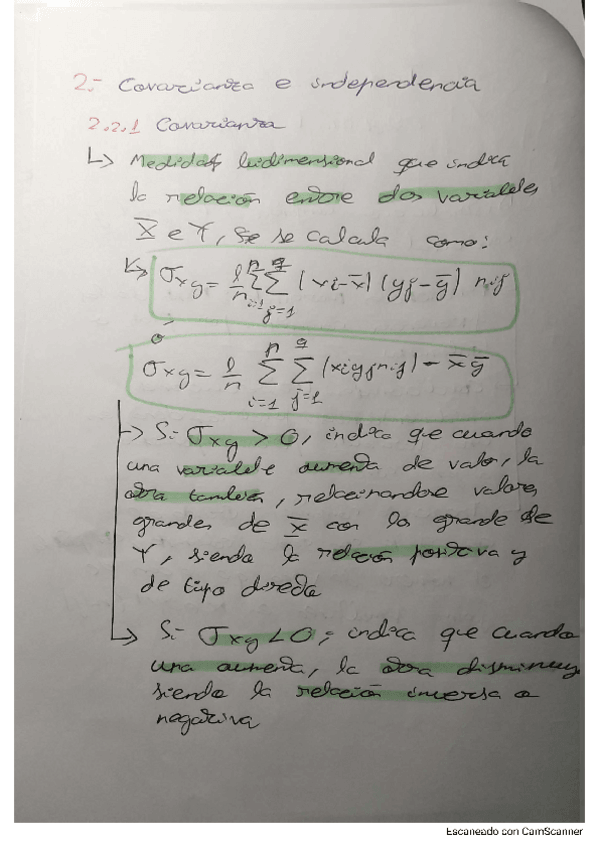 2.- Covarianza e independencia
2.2.1 Covarianza
↳ Medida bidimensional que indica
la relación entre dos variables
X e Y, se se calcula como:
↳ σxy = 1/n Σ(i=1, p) Σ(j=1, q) (xi - x̄) (yj - ȳ) nij
ó
σxy = 1/n Σ(i=1, p) Σ(j=1, q) (xi yj nij) - x̄ ȳ
↳ Si σxy > 0, indica que cuando
una variable aumenta de valor, la
otra también, relacionandose valores
grandes de X con lo grande de
Y, siendo la relación positiva y
de tipo directa
↳ Si σxy < 0, indica que cuando
una aumenta, la otra disminuy
siendo la relación inversa o
negativa
Escaneado con CamScanner